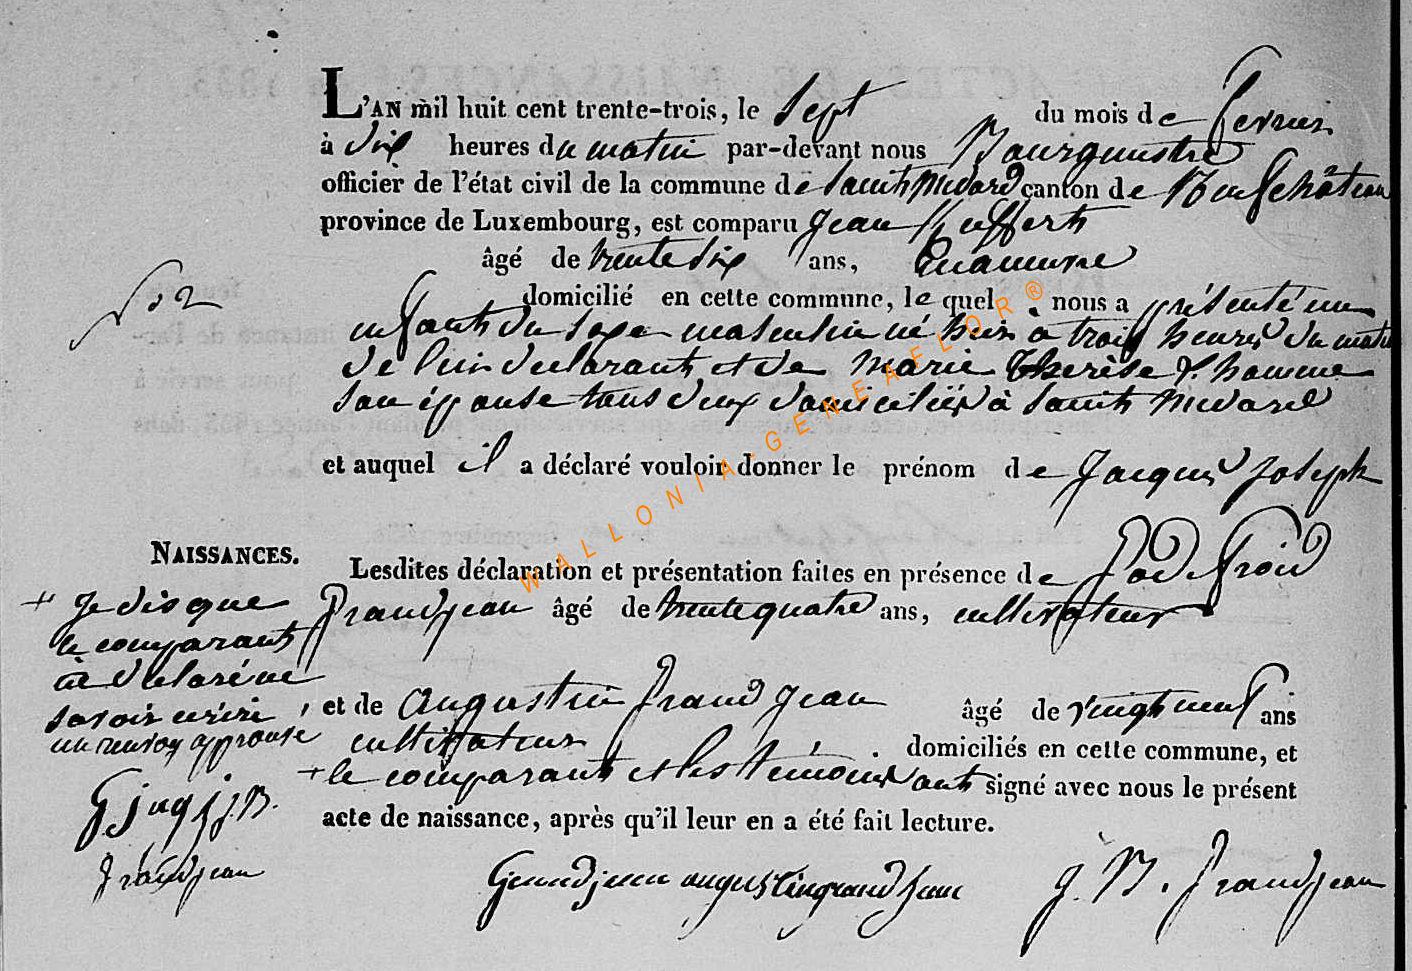 L'AN mil huit cent trente-trois, le Sept du mois de fevrier
à dix heures du matin par-devant nous Bourguestre
officier de l'état civil de la commune de Saint Medard canton de Neufchâteau
province de Luxembourg, est comparu Jean
âgé de trente six ans,
domicilié en cette commune, le quel nous a présenté un
enfant du sexe masculin né hier à trois heures du matin
de lui déclarant et de Marie Therèse
son épouse tous deux domiciliés à Saint Medard
et auquel il a déclaré vouloir donner le prénom de Jacques Joseph
Lesdites déclaration et présentation faites en présence de Godefroid
Grandjean âgé de trente quatre ans, cultivateur
et de Augustin Grand jean âgé de vingt neuf ans
cultivateur domiciliés en cette commune, et
+ le comparant et les témoins ont signé avec nous le présent
acte de naissance, après qu'il leur en a été fait lecture.
NAISSANCES.
+ Je dis que
le comparant
a déclaré ne
savoir écrire,
un renvoy approuvé
G j a g j j. B.
grandjean
Grandjean augustin grand jean J. B. Grandjean
WALLONIA-GENEAFLOR®